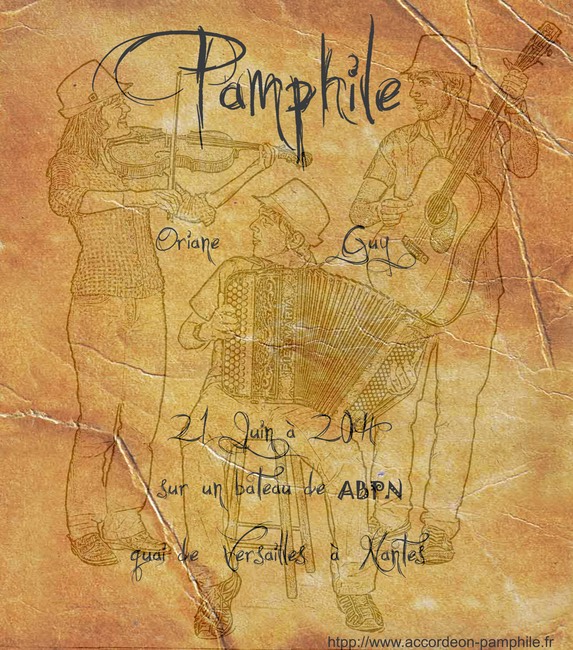 Pamphile
Oriane Guy
21 Juin à 20H
sur un bateau de ABPN
quai de Versailles à Nantes
htpp://www.accordeon-pamphile.fr